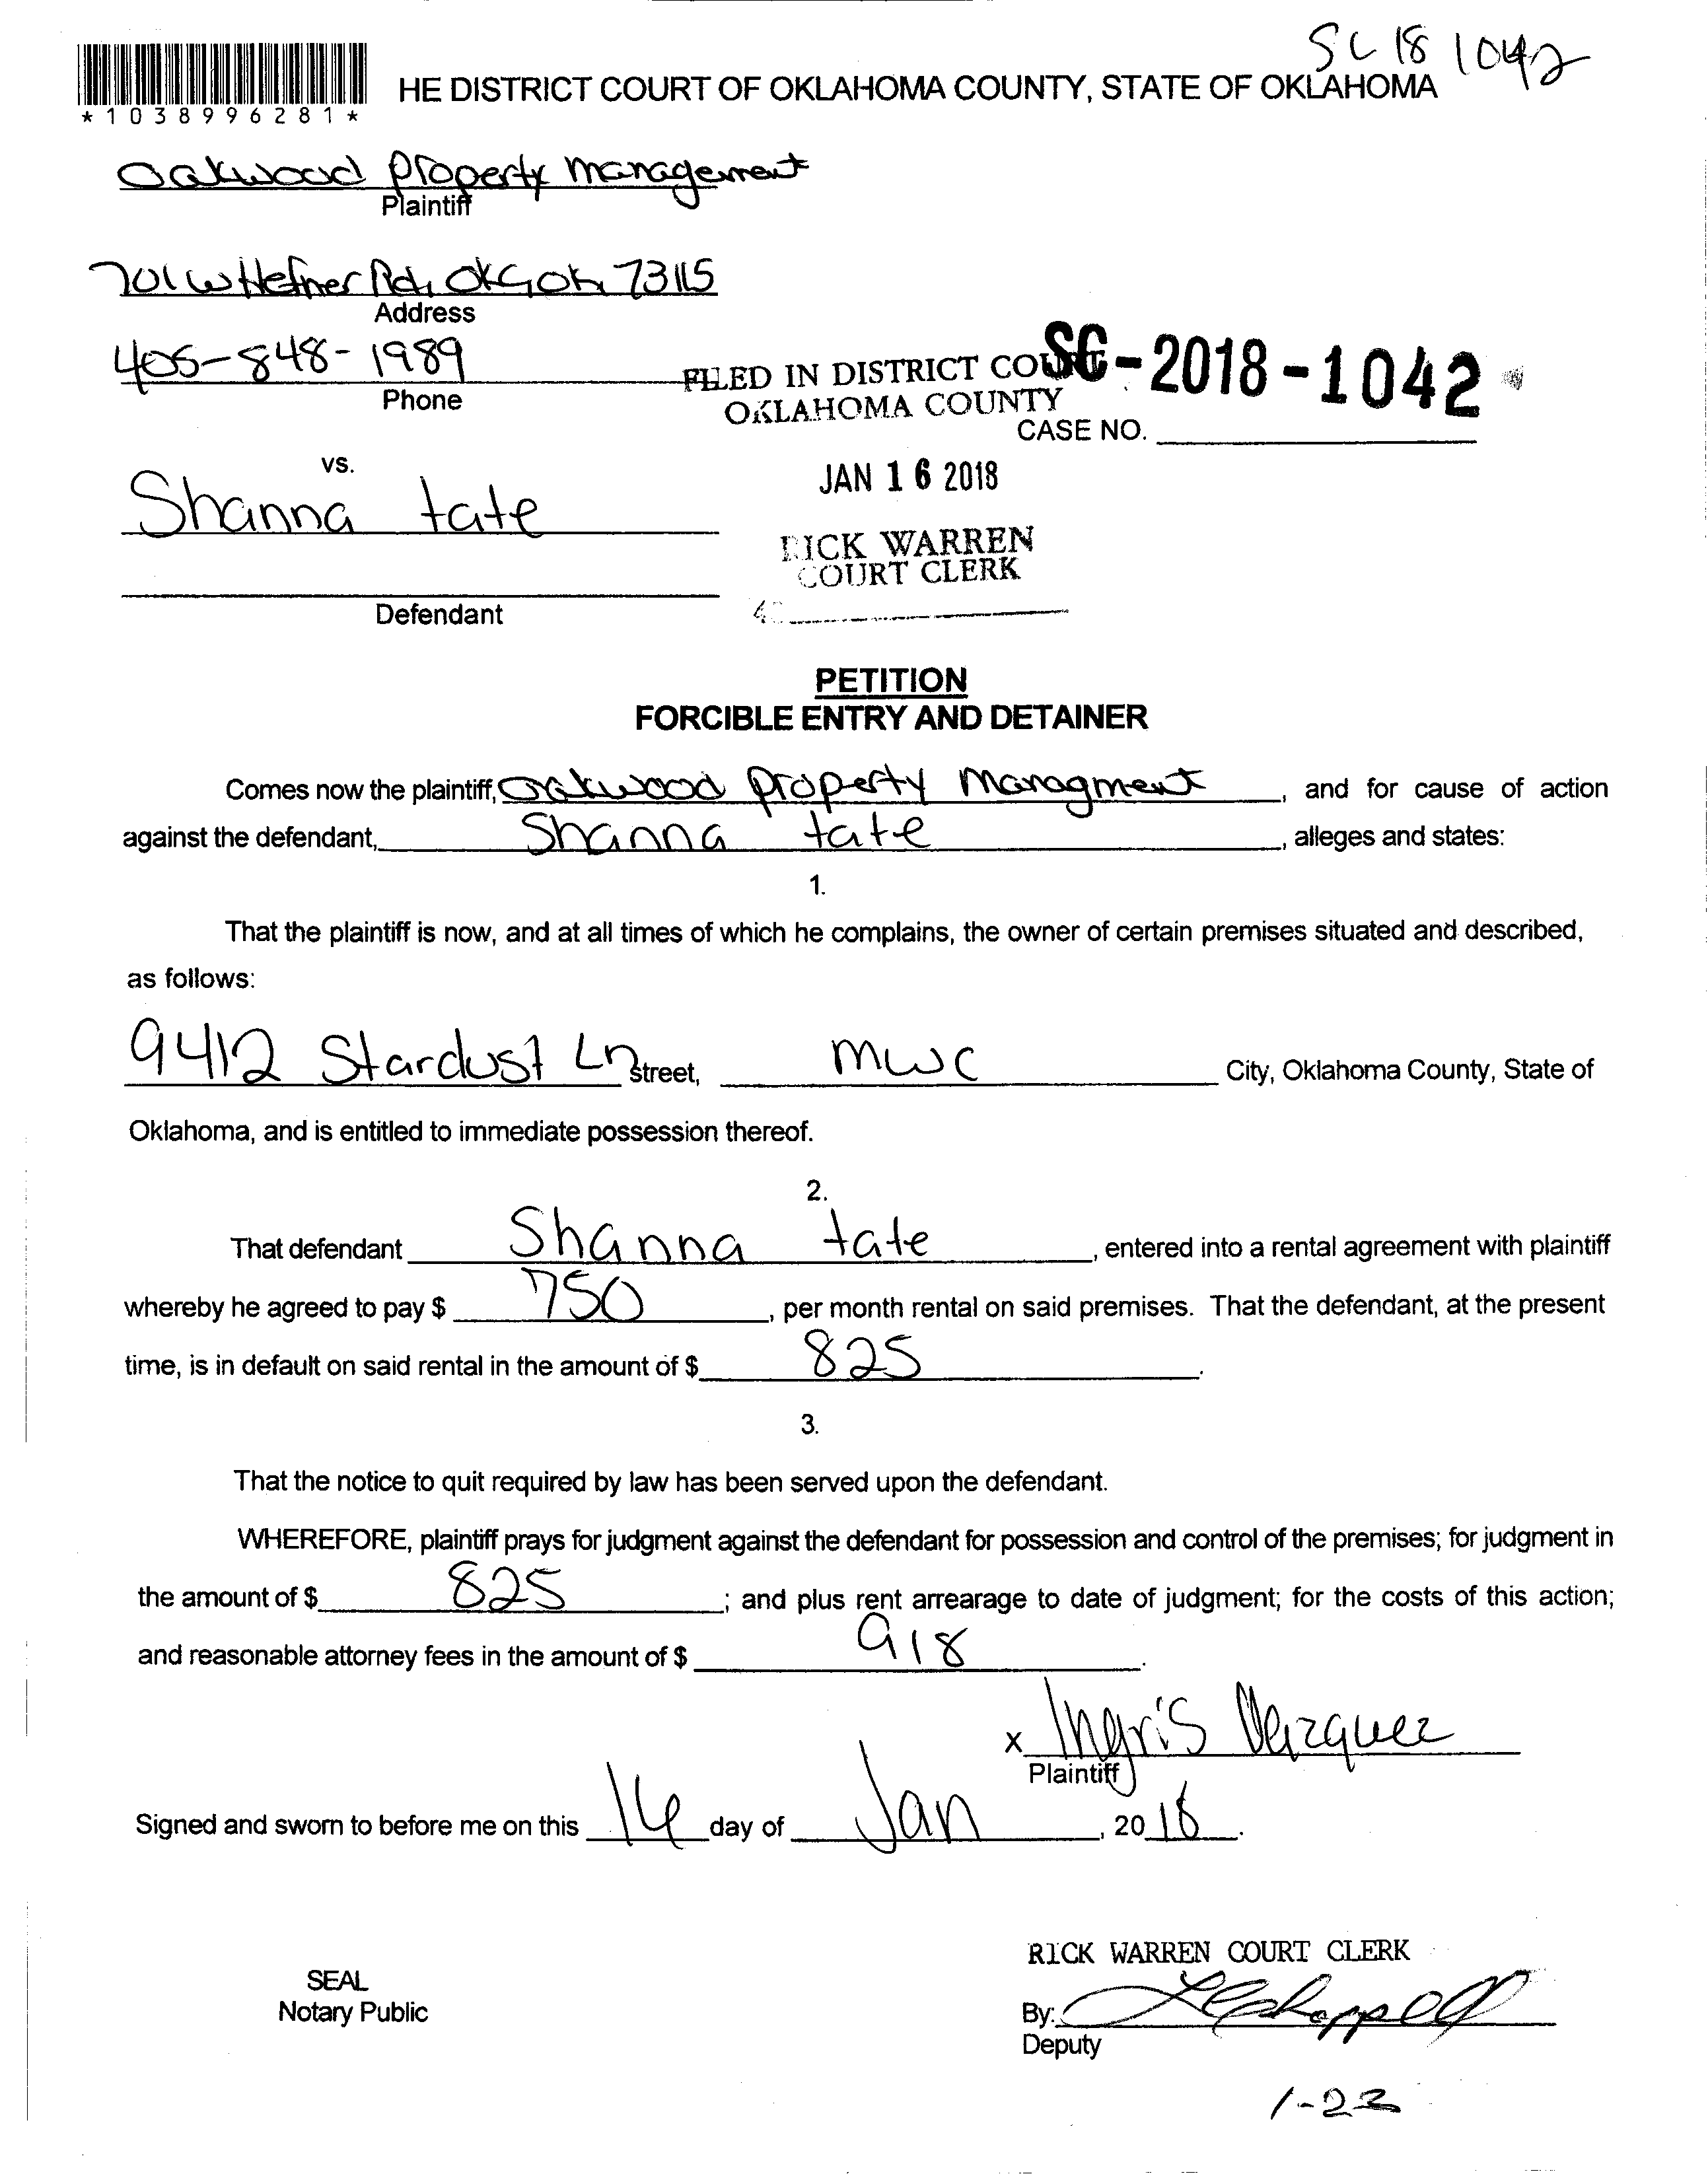 SC 18 1042
HE DISTRICT COURT OF OKLAHOMA COUNTY, STATE OF OKLAHOMA
*1038996281*
Oakwood Property Management
Plaintiff
701 W Hefner Rd, OKC OK 73115
Address
405-848-1989
Phone
FILED IN DISTRICT COURT
OKLAHOMA COUNTY
SC-2018-1042
CASE NO.
vs.
JAN 16 2018
Shanna tate
RICK WARREN
COURT CLERK
Defendant
PETITION
FORCIBLE ENTRY AND DETAINER
Comes now the plaintiff, Oakwood Property Managment, and for cause of action
against the defendant, Shanna tate, alleges and states:
1.
That the plaintiff is now, and at all times of which he complains, the owner of certain premises situated and described,
as follows:
9412 Stardust Ln Street, MWC City, Oklahoma County, State of
Oklahoma, and is entitled to immediate possession thereof.
2.
That defendant Shanna tate, entered into a rental agreement with plaintiff
whereby he agreed to pay $ 750, per month rental on said premises. That the defendant, at the present
time, is in default on said rental in the amount of $ 825.
3.
That the notice to quit required by law has been served upon the defendant.
WHEREFORE, plaintiff prays for judgment against the defendant for possession and control of the premises; for judgment in
the amount of $ 825; and plus rent arrearage to date of judgment; for the costs of this action;
and reasonable attorney fees in the amount of $ 918.
x Ingris Vazquez
Plaintiff
Signed and sworn to before me on this 16 day of Jan, 2018.
RICK WARREN COURT CLERK
SEAL
Notary Public
By:
Deputy
1-23